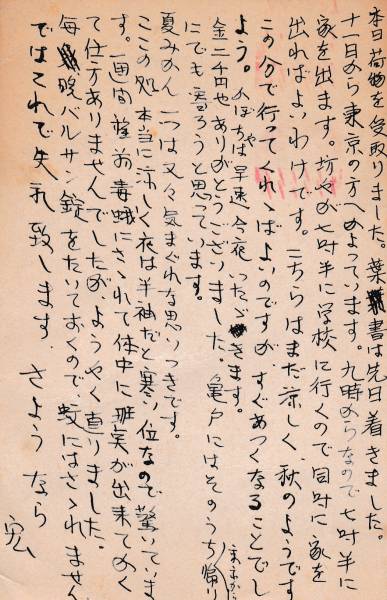 本日荷物を受取りました。葉書は先日着きました。
十一日から東京の方へかよっています。九時からなので七時半に
家を出ます。坊やが七時半に学校に行くので同時に家を
出ればよいわけです。こちらはまだ涼しく、秋のようです
この分で行ってくれゝばよいのですが、すぐあつくなることでし
よう。かぼちゃは早速今夜いたゞきます。
金二千円やありがとうございました。亀戸にはそのうち帰り
にでも寄ろうと思っています。
夏みかん二つは又々気まぐれな思いつきです。
ここの処本当に涼しく夜は半袖だと寒い位なので驚いていま
す。一週間程前毒蛾にさゝれて体中に斑実が出来てかく
て仕方ありませんでしたが、ようやく直りました。
毎晩バルサン錠をたいておくので、蚊にはさゝれません
ではこれで失礼致します さようなら
宏